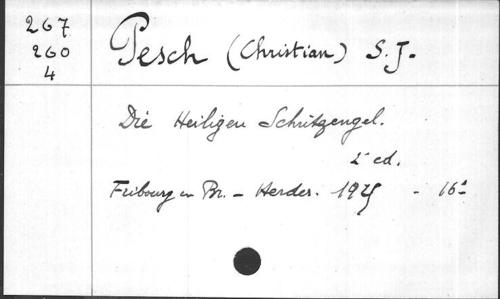 267
260
4
Pesch (Christian) S. J.
Die Heiligen Schutzengel.
2e ed.
Fribourg en Br. - Herder. 1925 - 16°